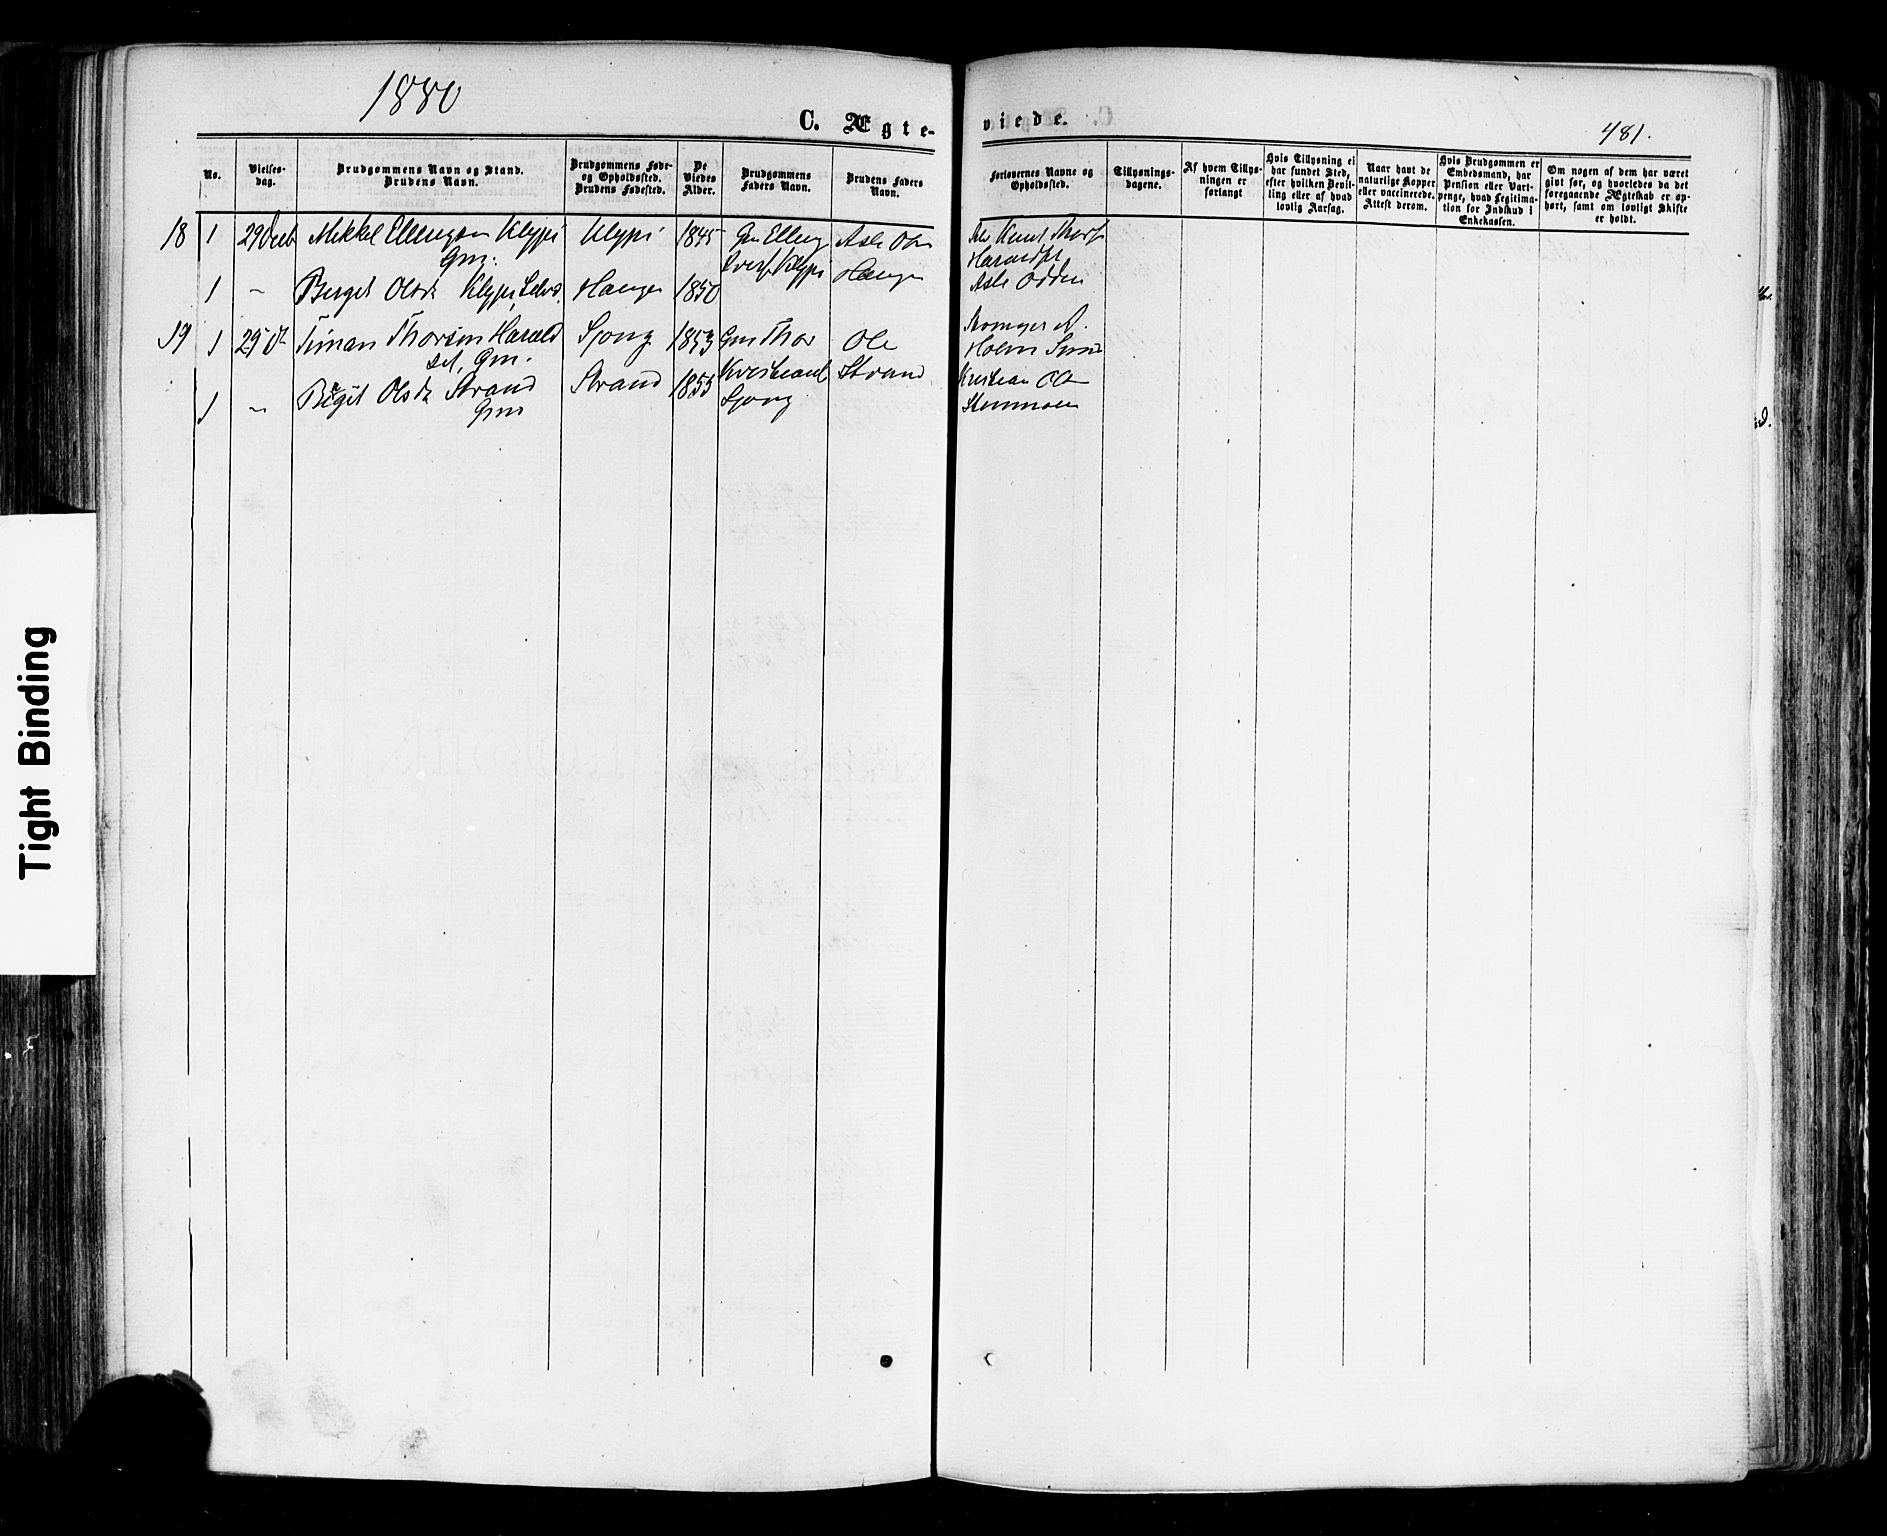 1880
C. Ægte-
viede.
481.
No.
Vielses-
dag.
Brudgommens Navn og Stand.
Brudens Navn.
Brudgommens Føde-
og Opholdssted.
Brudens Fødested.
De
Viedes
Alder.
Brudgommens
Faders Navn.
Brudens Faders
Navn.
Forlovernes Navne og
Opholdssted.
Tillysnings-
dagene.
Af hvem Tillys-
ningen er
forlangt
Hvis Tillysning ei
har fundet Sted,
efter hvilken Bevil-
ling eller af hvad
lovlig Aarsag.
Naar havt de
naturlige Kopper
eller vaccinerede.
Attest derom.
Hvis Brudgommen er
Embedsmand, har
Pension eller Vart-
penge, hvad Legitima-
tion for Indskud i
Enkekassen.
Om nogen af dem har været
gift før, og hvorledes da det
foregaaende Ægteskab er op-
hørt, samt om lovligt Skifte
er holdt.
18 1 29 Decb Mikkel Ellingsen Klypi Klypi 1845 Gm Elling Asle Ols
Gm.
Klypi Haugen
1 - Berget Olsdt Klypi, Haugen 1850
Asle Odden
19 1 29 Dt Timan Thorsen Harald Sjong 1853 Gm Thor Ole
set, Gm. Holm
1 - Birgit Olsdt Strand Strand 1855 Strand Kristian
Gm Sjong
Tight Binding